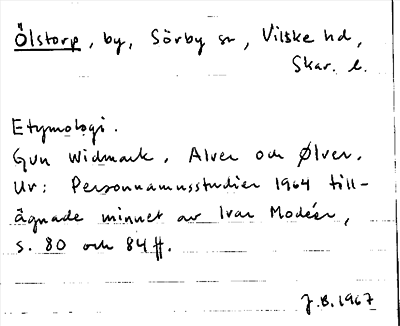 Ölstorp, by, Sörby sn, Vilske hd,
Skar. l.
Etymologi.
Gun Widmark. Alver och Ølver.
Ur: Personnamnsstudier 1964 till-
ägnade minnet av Ivar Modéer,
s. 80 och 84 ff.
J.B. 1967